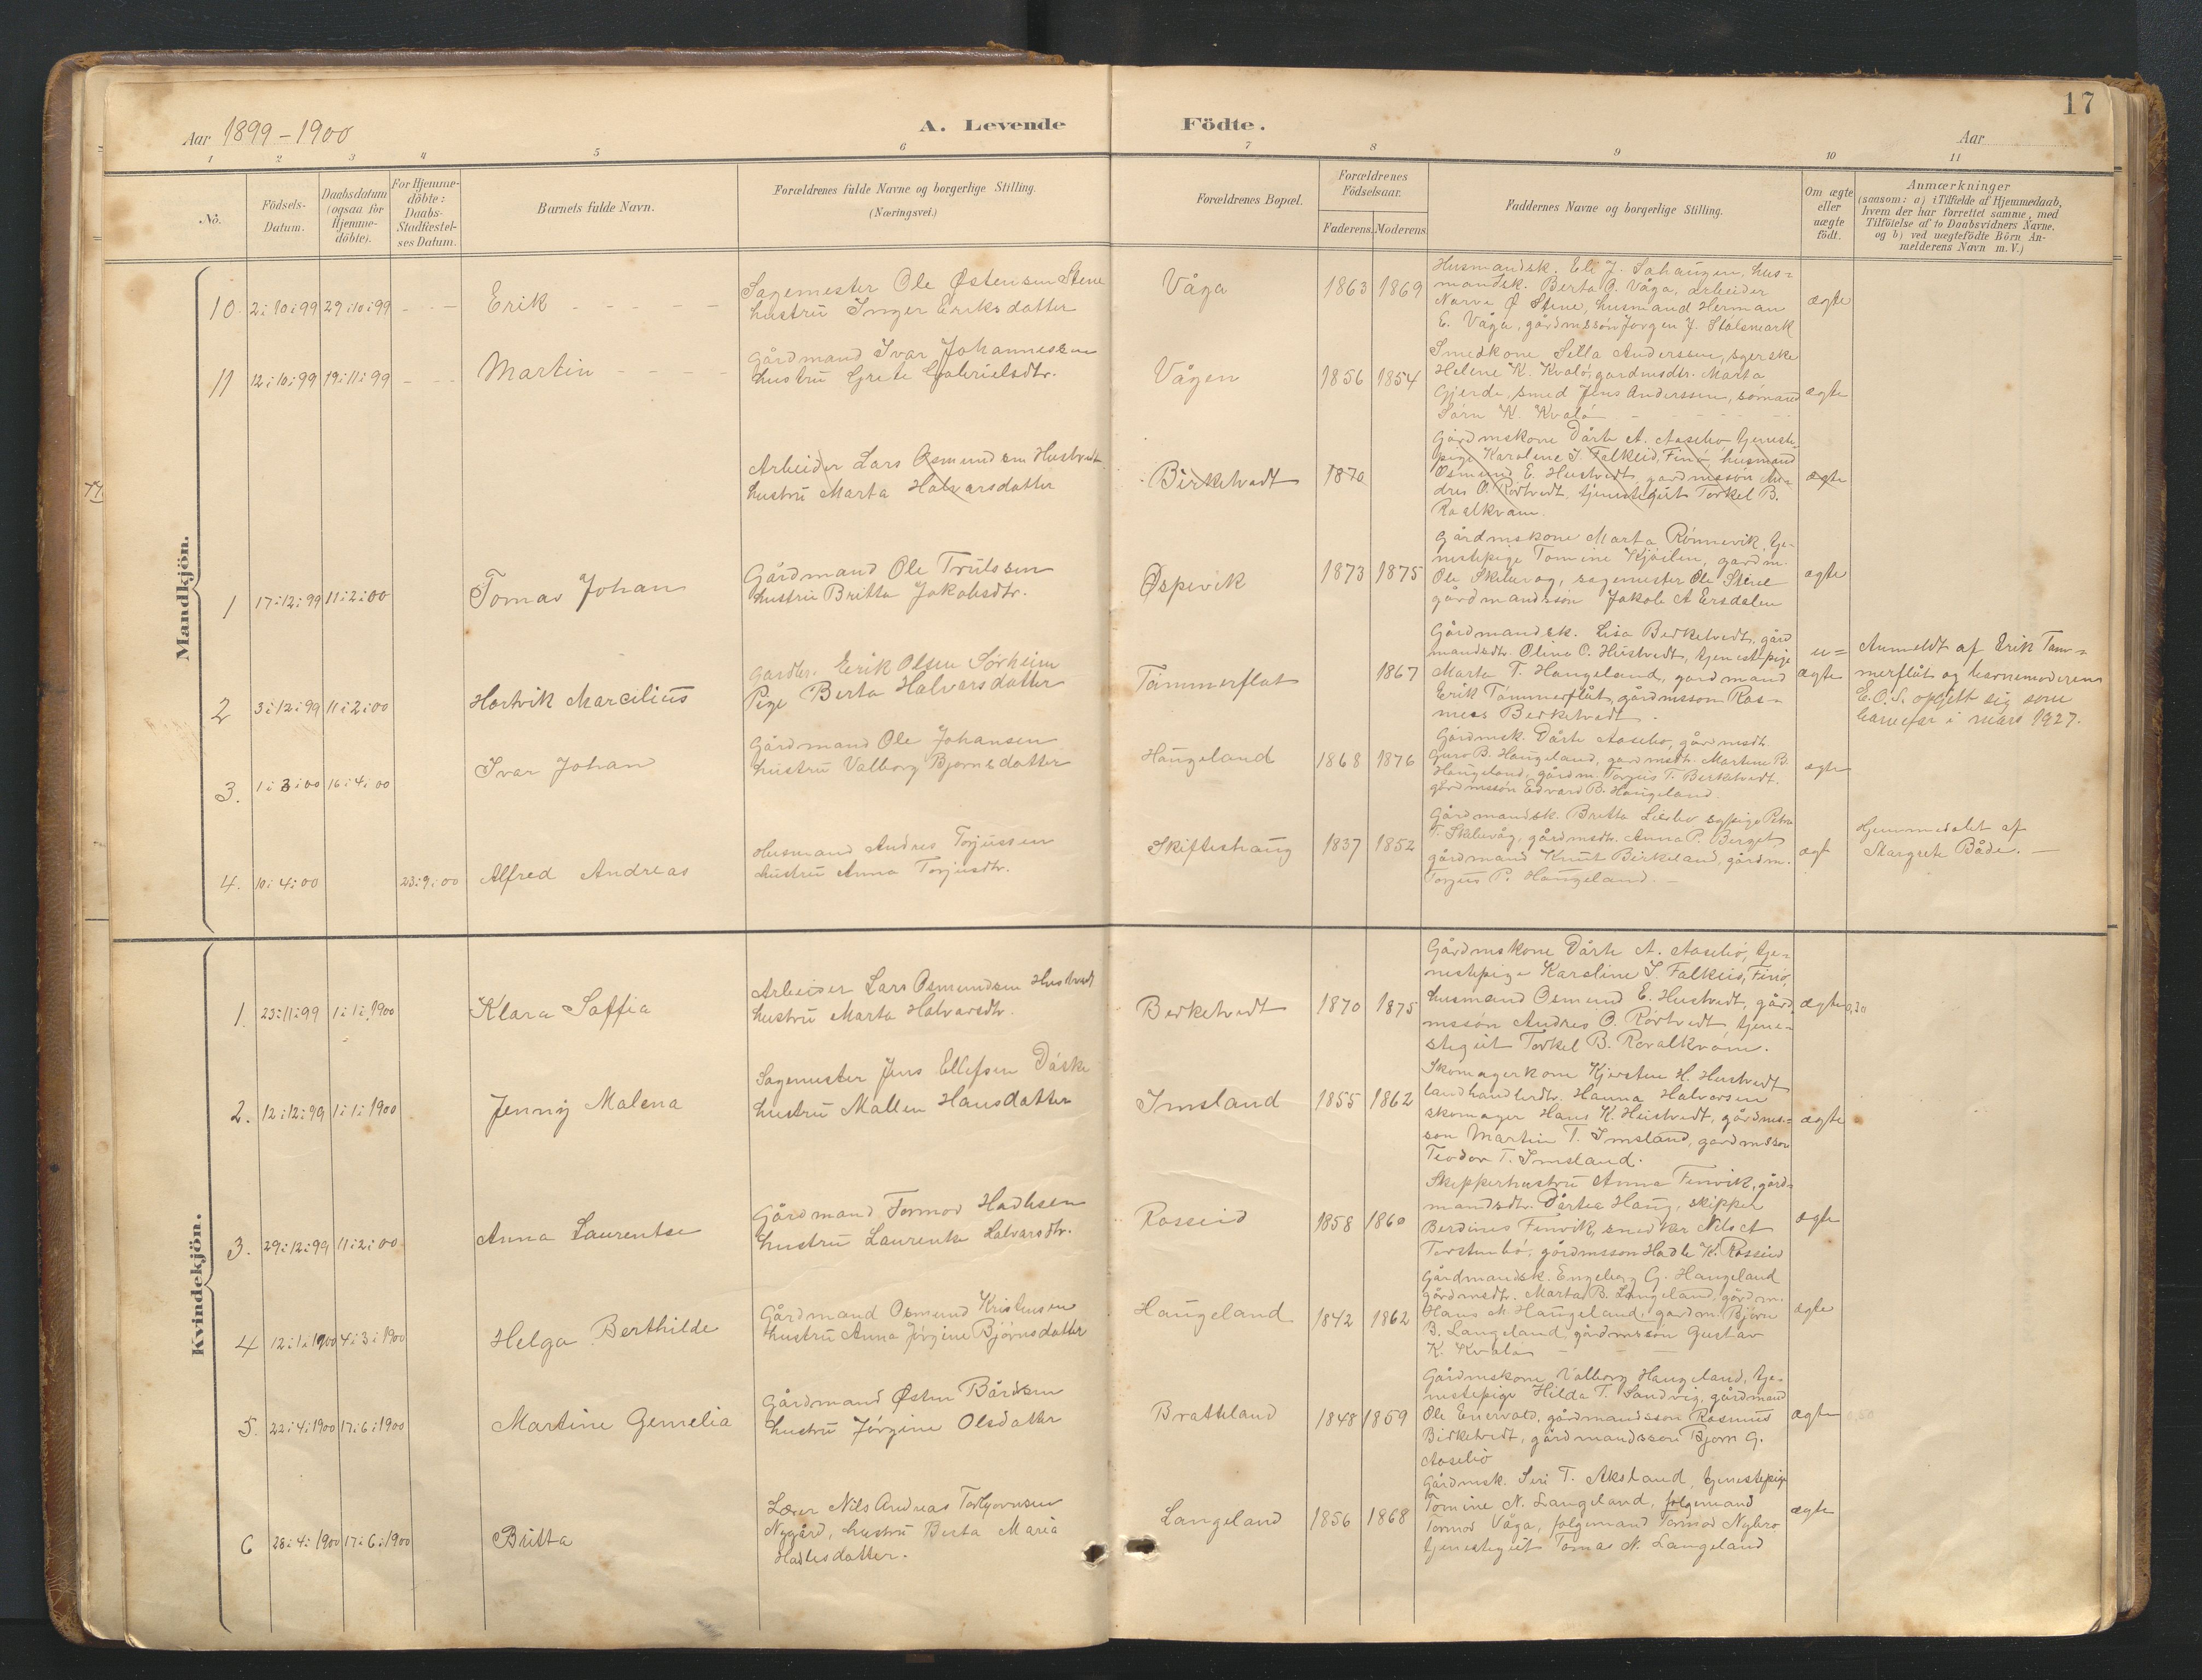 17
Aar 1899-1900
A. Levende
Födte.
Aar
1 2 3 4 5 6 7 8 9 10 11
No.
Födsels-
Datum.
Daabsdatum
(ogsaa for
Hjemme-
döbte).
For Hjemme-
döbte:
Daabs-
Stadfæstel-
ses Datum.
Barnets fulde Navn.
Forældrenes fulde Navne og borgerlige Stilling.
(Næringsvei.)
Forældrenes Bopæl.
Forældrenes
Födselsaar.
Faderens. Moderens.
Faddernes Navne og borgerlige Stilling.
Om ægte
eller
uægte
født.
Anmærkninger
(saasom: a) i Tilfælde af Hjemmedaab,
hvem der har forrettet samme, med
Tilföielse af to Daabsvidners Navne.
og b) ved uægtefödte Börn An-
melderens Navn m. V.)
Mandkjön.
10. 2:10:99 29:10:99 - - - Erik - - - -
Sagemester Ole Østensen Stene
hustru Inger Eriksdatter
Våga 1863 1869
Husmandsk. Eli J. Sahaugen, hus=
mandsk. Berta O. Våga, arbeider
Narve Ø Stene, husmand Herman
E. Våga, gårdmssøn Jørgen J. Stølsmark
ægte
11 12:10:99 19:11:99 - - - Martin - - - -
Gårdmand Ivar Johannessen
hustru Grete Gabrielsdtr.
Vågen 1856 1854
Smedkone Sella Anderssen, syerske
Helene K. Kvalø, gardmsdtr. Marta
Gjerde, smed Jens Anderssen,
Sørn K. Kvalø
ægte
Arbeider Lars Osmundsen Hustvedt
hustru Marta Halvarsdatter
Birketvedt 1870
Gårdmskone Dårte A. Aasebø tjeneste-
pige Karoline J. Falkeid, Finø, husmand
Osmund E. Hustvedt, gardmssøn An-
dres O. Rørtvedt, tjenestegut Torkel B.
ægte
1 17:12:99 11:2:00 Tomas Johan
Gårdmand Ole Trulssen
hustru Britta Jakobsdtr.
Øspevik 1873 1875
Gårdmskone Marta Rønnevik, tje-
nestepige Tomine Kjøilen, gardm.
Ole Skeluvog, sagemester Ole Stene
gårdmandssøn Jakob A Ersdalen
ægte
2 3:12:99 11:2:00 Hartvik Marcilius
Gardbr. Erik Olsen Sørheim
Pige Berta Halvarsdatter
Tømmerflåt 1867
Gårdmandsk. Lisa Berketvedt, gård
mandsdtr. Oline O. Hustvedt, tjenestepige
Marta T. Haugeland, gardmand
Erik Tømmerflåt, gårdmsson Ras-
mus Berketvedt.
u=
ægte
Anmeldt af Erik Tøm=
merflåt og barnemoderen
E.O.S. opgett sig som
barnefar i mars 1927.
3. 1:3:00 16:4:00 Ivar Johan
Gårdmand Ole Johansen
hustru Valborg Bjørnsdatter
Haugeland 1868 1876
Gårdmsk. Dårte Aasebø, gårdmsdtr
Guro B. Haugeland, gardmsdtr. Martine B.
Haugeland, gårdm. Torjus T. Berketvedt.
gårdmssøn Edvard B. Haugeland.
ægte
4. 10:4:00 23:9:00 Alfred Andreas
Husmand Andres Torjussen
hustru Anna Torjusdtr.
Skifteshaug 1837 1852
Gårdmandsk. Britta Liesbø sypige
T. Skeluvåg, gårdmsdtr. Anna P. Berget
gårdmand Knut Birkeland, gårdm.
Torjus P. Haugeland. -
ægt
Hjemmedøbt af
Margrete Både. -
Kvindekjön.
1. 23:11:99 1:1:1900 Klara Saffia
Arbeider Lars Osmundsen Hustvedt
hustru Marta Halvarsdtr.
Berketvedt 1870 1875
Gårdmskone Dårte A. Aasebø, tje-
nestepige Karoline J. Falkeid, Finø,
husmand Osmund E. Hustvedt, gård
mssøn Andres O. Rørtvedt, tjene-
stegut Torkel B. Rovalkvam.
ægte 0,30
2. 12:12:99 1:1:1900 Jenny Malena
Sagemester Jens Ellefsen Dåske
hustru Mallen Hansdatter
Imsland 1855 1862
Skomagerkone Kjersten H. Hustvedt
landhandlerdtr. Hanna Halvorsen
skomager Hans K. Heistvedt, gårdms=
søn Martin T. Imsland, gardmsson
Teodor T. Imsland.
ægte
3. 29:12:99 11:2:00 Anna Laurentse
Gårdmand Tormod Hadlesen
hustru Laurentse Halvarsdtr.
Rosseid 1858 1860
Skipperhustru Anna Finvik, gård-
mandsdtr. Dårtea Haug, skipper
Berdines Finvik, snedker Nels A
Torstenbø, gårdmsson Hadle K. Rosseid
ægte
4 12:1:1900 4:3:1900 Helga Berthilde
Gårdmand Osmund Kristensen
hustru Anna Jørgine Bjørnsdatter
Haugeland 1842 1862
Gårdmandsk. Engeborg G. Haugeland
gårdmsdtr. Marta B. Langeland, gårdm.
Hans M. Haugeland, gardm. Bjørn
B. Langeland, gårdmssøn Gustav
K. Kvaløs - - -
ægte
5. 22:4:1900 17:6:1900 Martine Gemelia
Gårdmand Østen Bårdsen
hustru Jørgine Olsdatter
Bratteland 1848 1859
Gårdmskone Valborg Haugeland, tje-
nestepige Hilda T. Sandvig, gårdmand
Ole Enervold, gårdmandssøn Rasmus
Birketvedt, gårdmandssøn Bjørn G.
Aasebø
ægte 0,50
6 28:4:1900 17:6:1900 Britta
Lærer Nils Andreas Torbjørnsen
Nygård, hustru Berta Maria
Hadlesdatter.
Langeland 1856 1868
Gårdmsk. Seri T. Aksland, tjenestepige
Tomine N. Langeland, følgemand
Tormod Våga, følgemand Tormod Nybro
tjenestegut Tomas N. Langeland
ægte